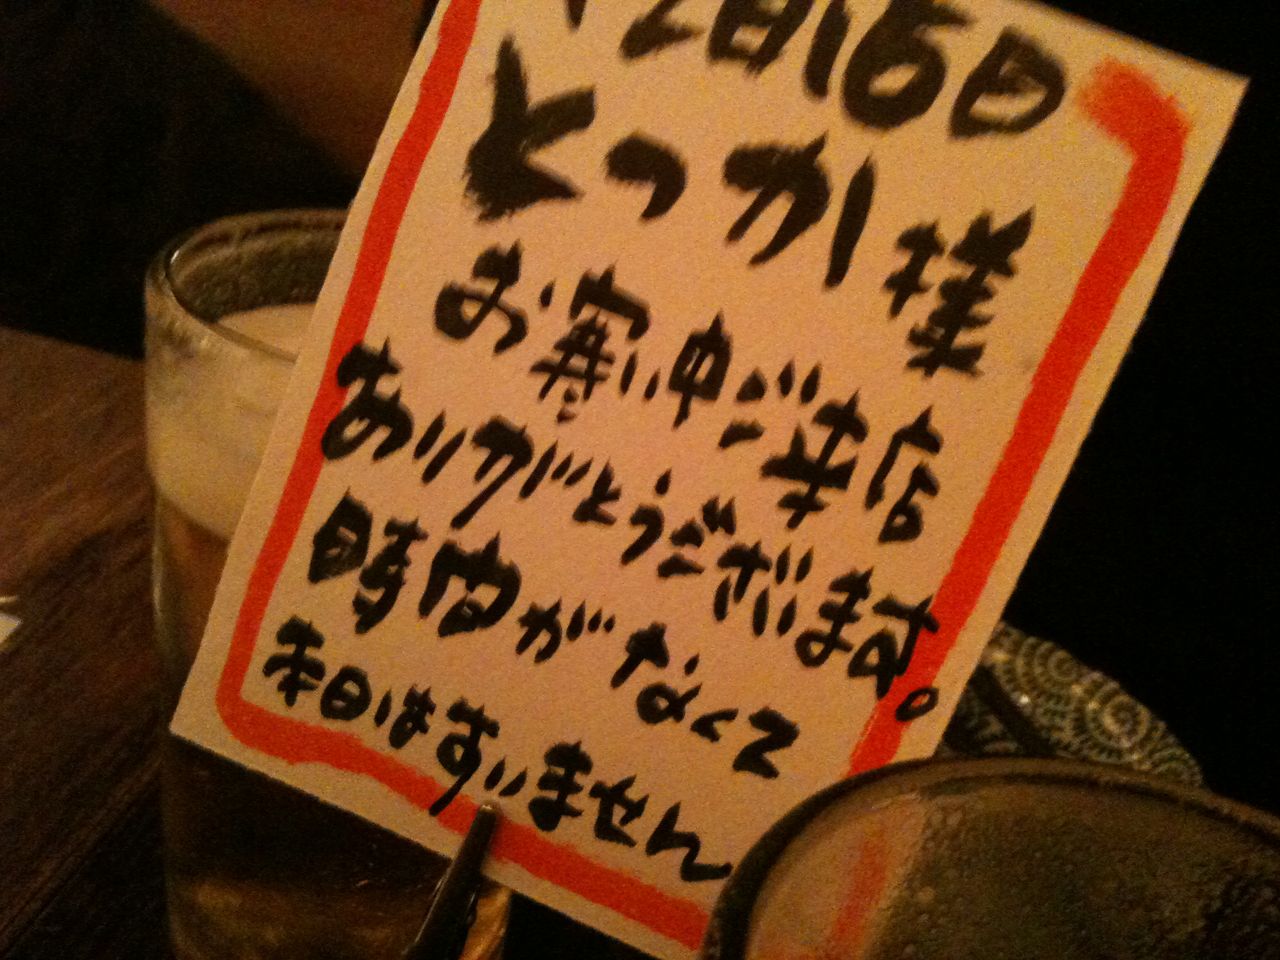 12月16日
とっか様
お寒い中ご来店
ありがとうございます。
時間がなくて
本日はすいません